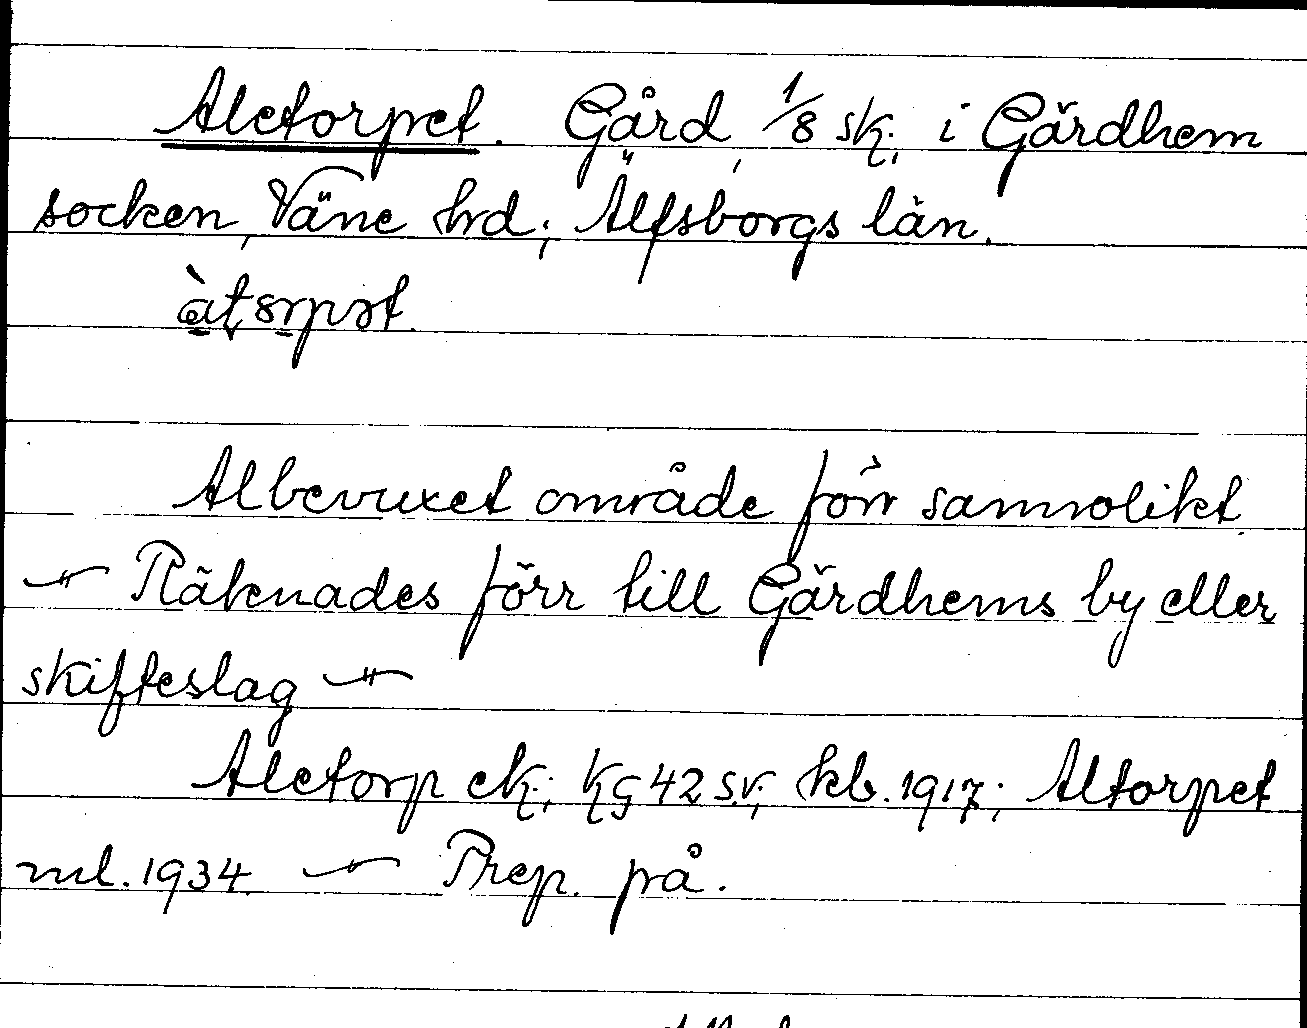 Aletorpet. Gård, 1/8 sk., i Gärdhem
socken, Väne hrd; Älfsborgs län.
Albevuxet område förr sannolikt.
–"– Räknades förr till Gärdhems by eller
skifteslag –"–
Aletorp ek.; kg 42 s.v.; kb. 1917; Altorpet
ml. 1934. –"– Prep. på.